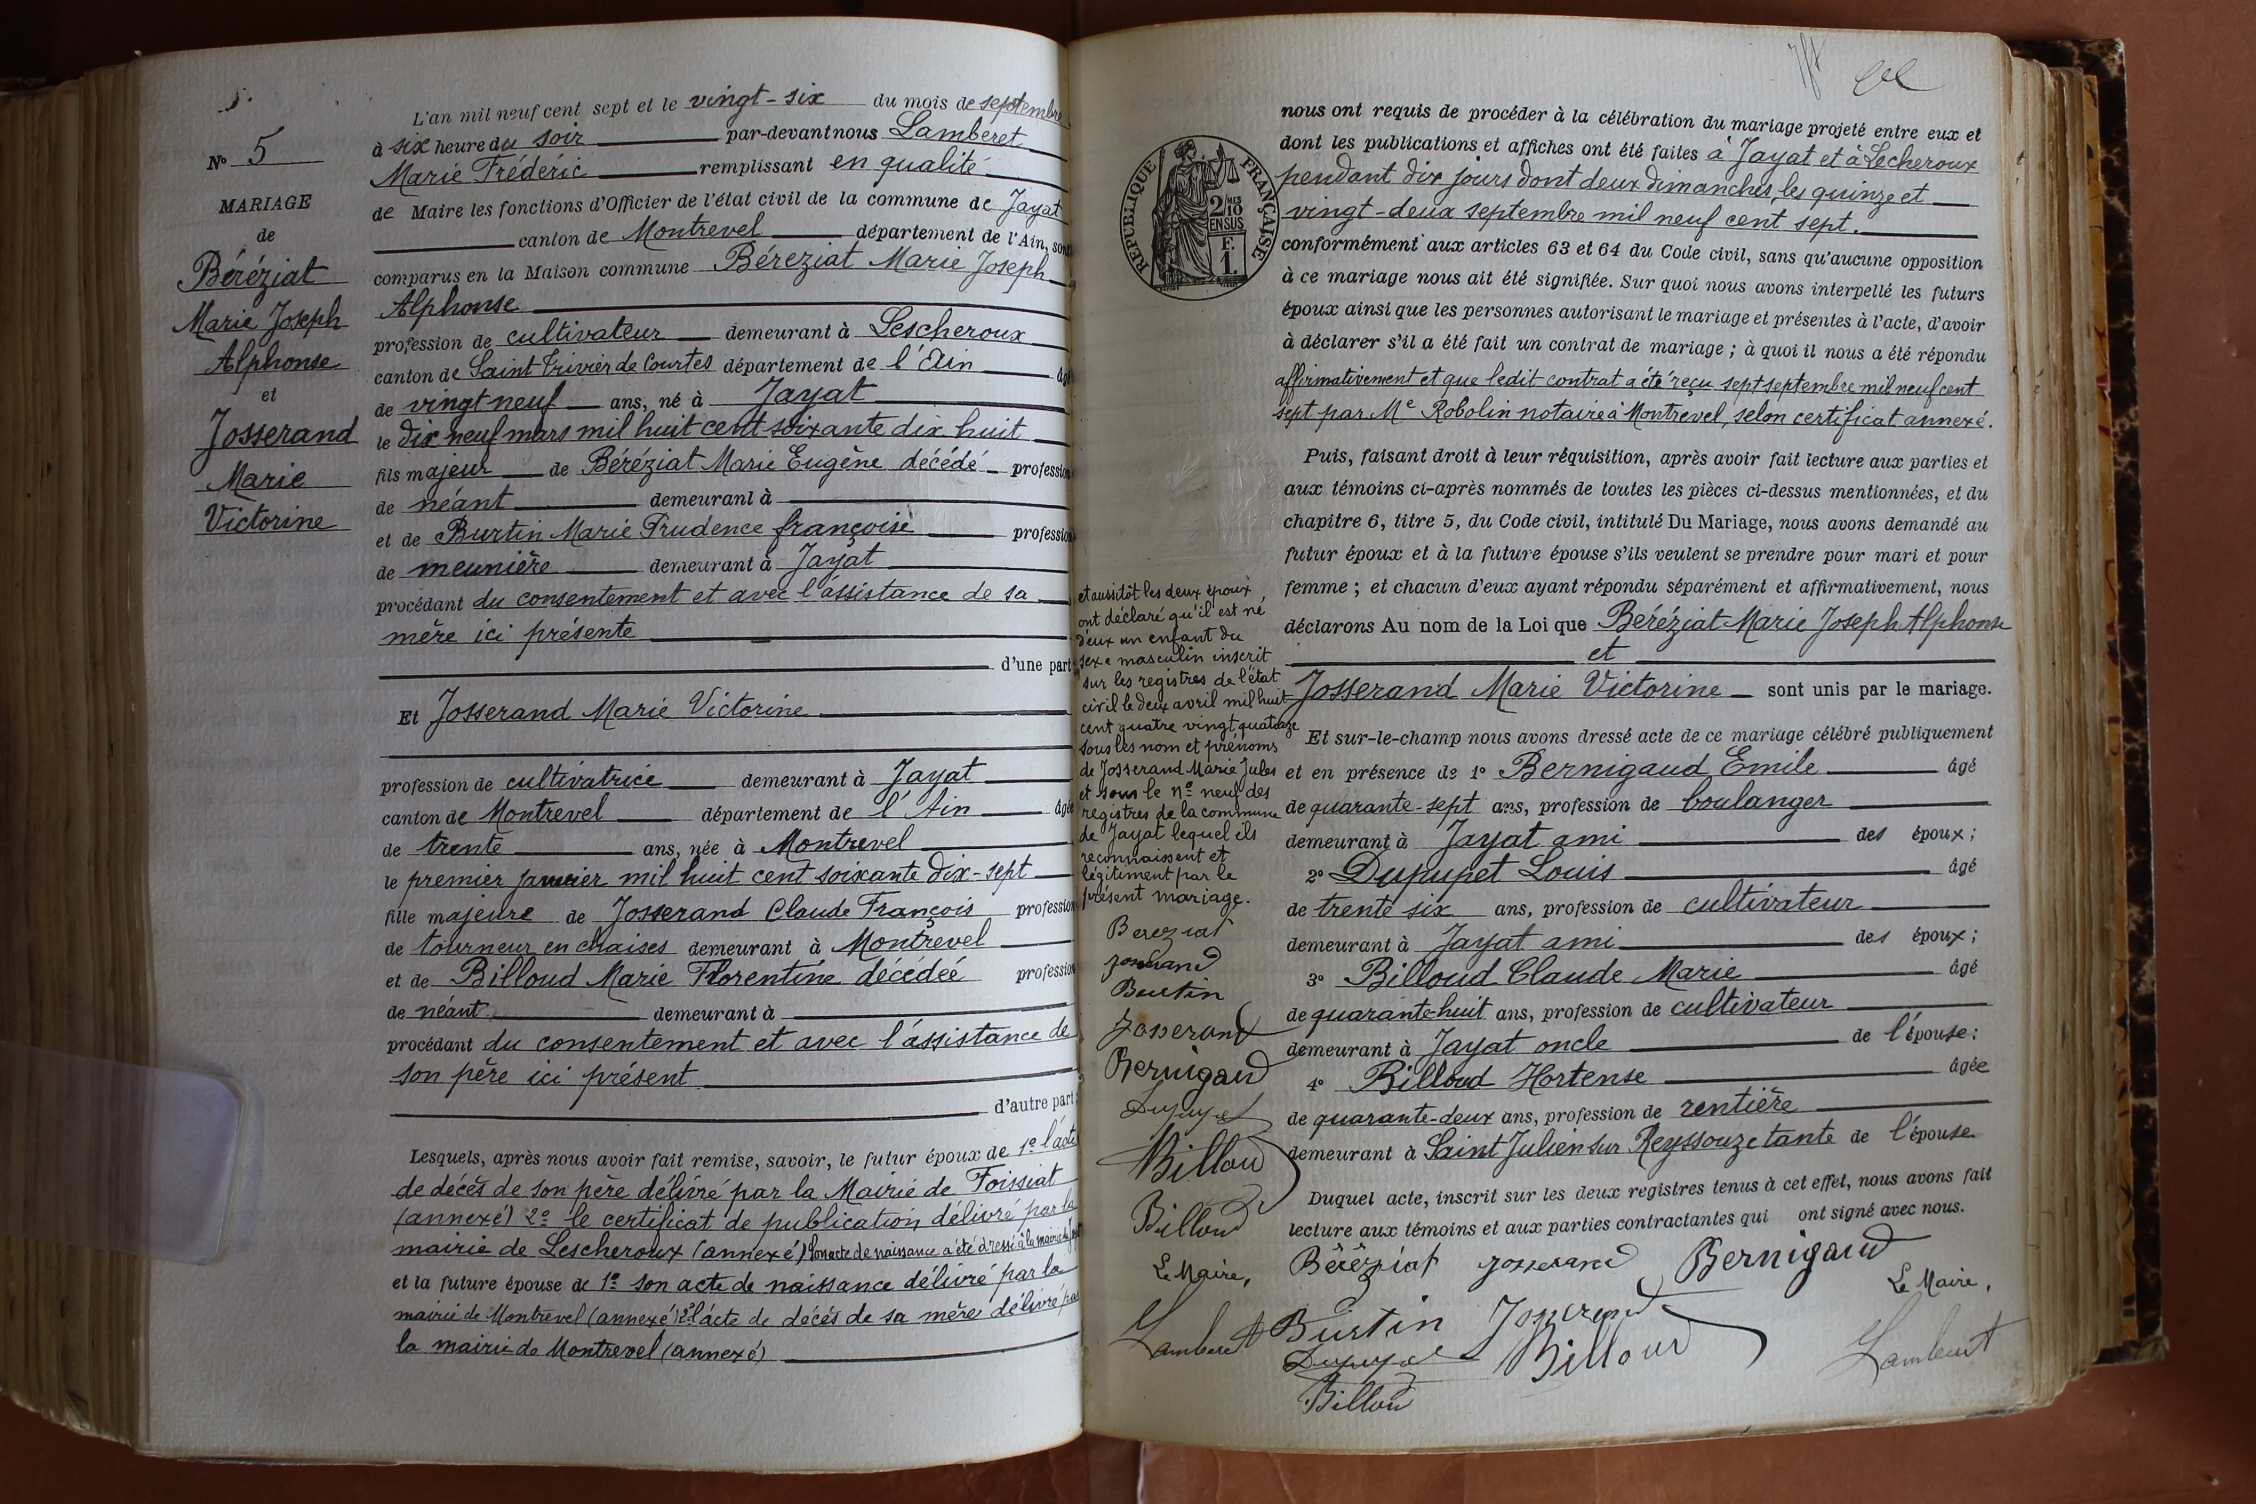 5.
N° 5
MARIAGE
de
Béréziat
Marie Joseph
Alphonse
et
Josserand
Marie
Victorine
L'an mil neuf cent sept et le vingt-six du mois de septembre
à six heure du soir par-devant nous Lamberet
Marie Frédéric remplissant en qualité
de Maire les fonctions d'Officier de l'état civil de la commune de Jayat
canton de Montrevel département de l'Ain, sont
comparus en la Maison commune Béreziat Marie Joseph
Alphonse
profession de cultivateur demeurant à Lescheroux
canton de Saint Trivier de Courtes département de l'Ain âgé
de vingt neuf ans, né à Jayat
le dix neuf mars mil huit cent soixante dix huit
fils majeur de Béréziat Marie Eugène décédé profession
de néant demeurant à
et de Burtin Marie Prudence françoise profession
de meunière demeurant à Jayat
procédant du consentement et avec l'assistance de sa
mère ici présente
d'une part
Et Josserand Marie Victorine
profession de cultivatrice demeurant à Jayat
canton de Montrevel département de l'Ain âgée
de trente ans, née à Montrevel
le premier janvier mil huit cent soixante dix-sept
fille majeure de Josserand Claude François profession
de tourneur en chaises demeurant à Montrevel
et de Billoud Marie Florentine décédée profession
de néant demeurant à
procédant du consentement et avec l'assistance de
son père ici présent
d'autre part
Lesquels, après nous avoir fait remise, savoir, le futur époux de 1° l'acte
de décès de son père délivré par la Mairie de Foissiat
(annexé) 2° le certificat de publication délivré par la
mairie de Lescheroux (annexé) Son acte de naissance a été dressé à la mairie de
et la future épouse de 1° son acte de naissance délivré par la
mairie de Montrevel (annexé) 2° l'acte de décès de sa mère délivré par
la mairie de Montrevel (annexé)
RÉPUBLIQUE FRANÇAISE
2/10
EN SUS
F.
1.
et aussitôt les deux époux
ont déclaré qu'il est né
d'eux un enfant du
sexe masculin inscrit
sur les registres de l'état
civil le deux avril mil huit
cent quatre vingt quatorze
sous les nom et prénoms
de Josserand Marie Jules
et sous le n° neuf des
registres de la commune
de Jayat lequel ils
reconnaissent et
légitiment par le
présent mariage.
Bereziat
Josserand
Burtin
Josserand
Bernigaud
Dupupet
Billoud
Billoud
Le Maire,
Lamberet
nous ont requis de procéder à la célébration du mariage projeté entre eux et
dont les publications et affiches ont été faites à Jayat et à Lecheroux
pendant dix jours dont deux dimanches, les quinze et
vingt-deux septembre mil neuf cent sept.
conformément aux articles 63 et 64 du Code civil, sans qu'aucune opposition
à ce mariage nous ait été signifiée. Sur quoi nous avons interpellé les futurs
époux ainsi que les personnes autorisant le mariage et présentes à l'acte, d'avoir
à déclarer s'il a été fait un contrat de mariage ; à quoi il nous a été répondu
affirmativement et que ledit contrat a été reçu sept septembre mil neuf cent
sept par Me Robolin notaire à Montrevel, selon certificat annexé.
Puis, faisant droit à leur réquisition, après avoir fait lecture aux parties et
aux témoins ci-après nommés de toutes les pièces ci-dessus mentionnées, et du
chapitre 6, titre 5, du Code civil, intitulé Du Mariage, nous avons demandé au
futur époux et à la future épouse s'ils veulent se prendre pour mari et pour
femme ; et chacun d'eux ayant répondu séparément et affirmativement, nous
déclarons Au nom de la Loi que Béréziat Marie Joseph Alphonse
et
Josserand Marie Victorine sont unis par le mariage.
Et sur-le-champ nous avons dressé acte de ce mariage célébré publiquement
et en présence de 1° Bernigaud Emile âgé
de quarante-sept ans, profession de boulanger
demeurant à Jayat ami des époux ;
2° Dupupet Louis âgé
de trente six ans, profession de cultivateur
demeurant à Jayat ami des époux ;
3° Billoud Claude Marie âgé
de quarante-huit ans, profession de cultivateur
demeurant à Jayat oncle de l'épouse ;
4° Billoud Hortense âgée
de quarante-deux ans, profession de rentière
demeurant à Saint Julien sur Reyssouze tante de l'épouse
Duquel acte, inscrit sur les deux registres tenus à cet effet, nous avons fait
lecture aux témoins et aux parties contractantes qui ont signé avec nous.
Béréziat Josserand Bernigaud
Le Maire,
Burtin Josserand
Dupupet Billoud Lamberet
Billoud